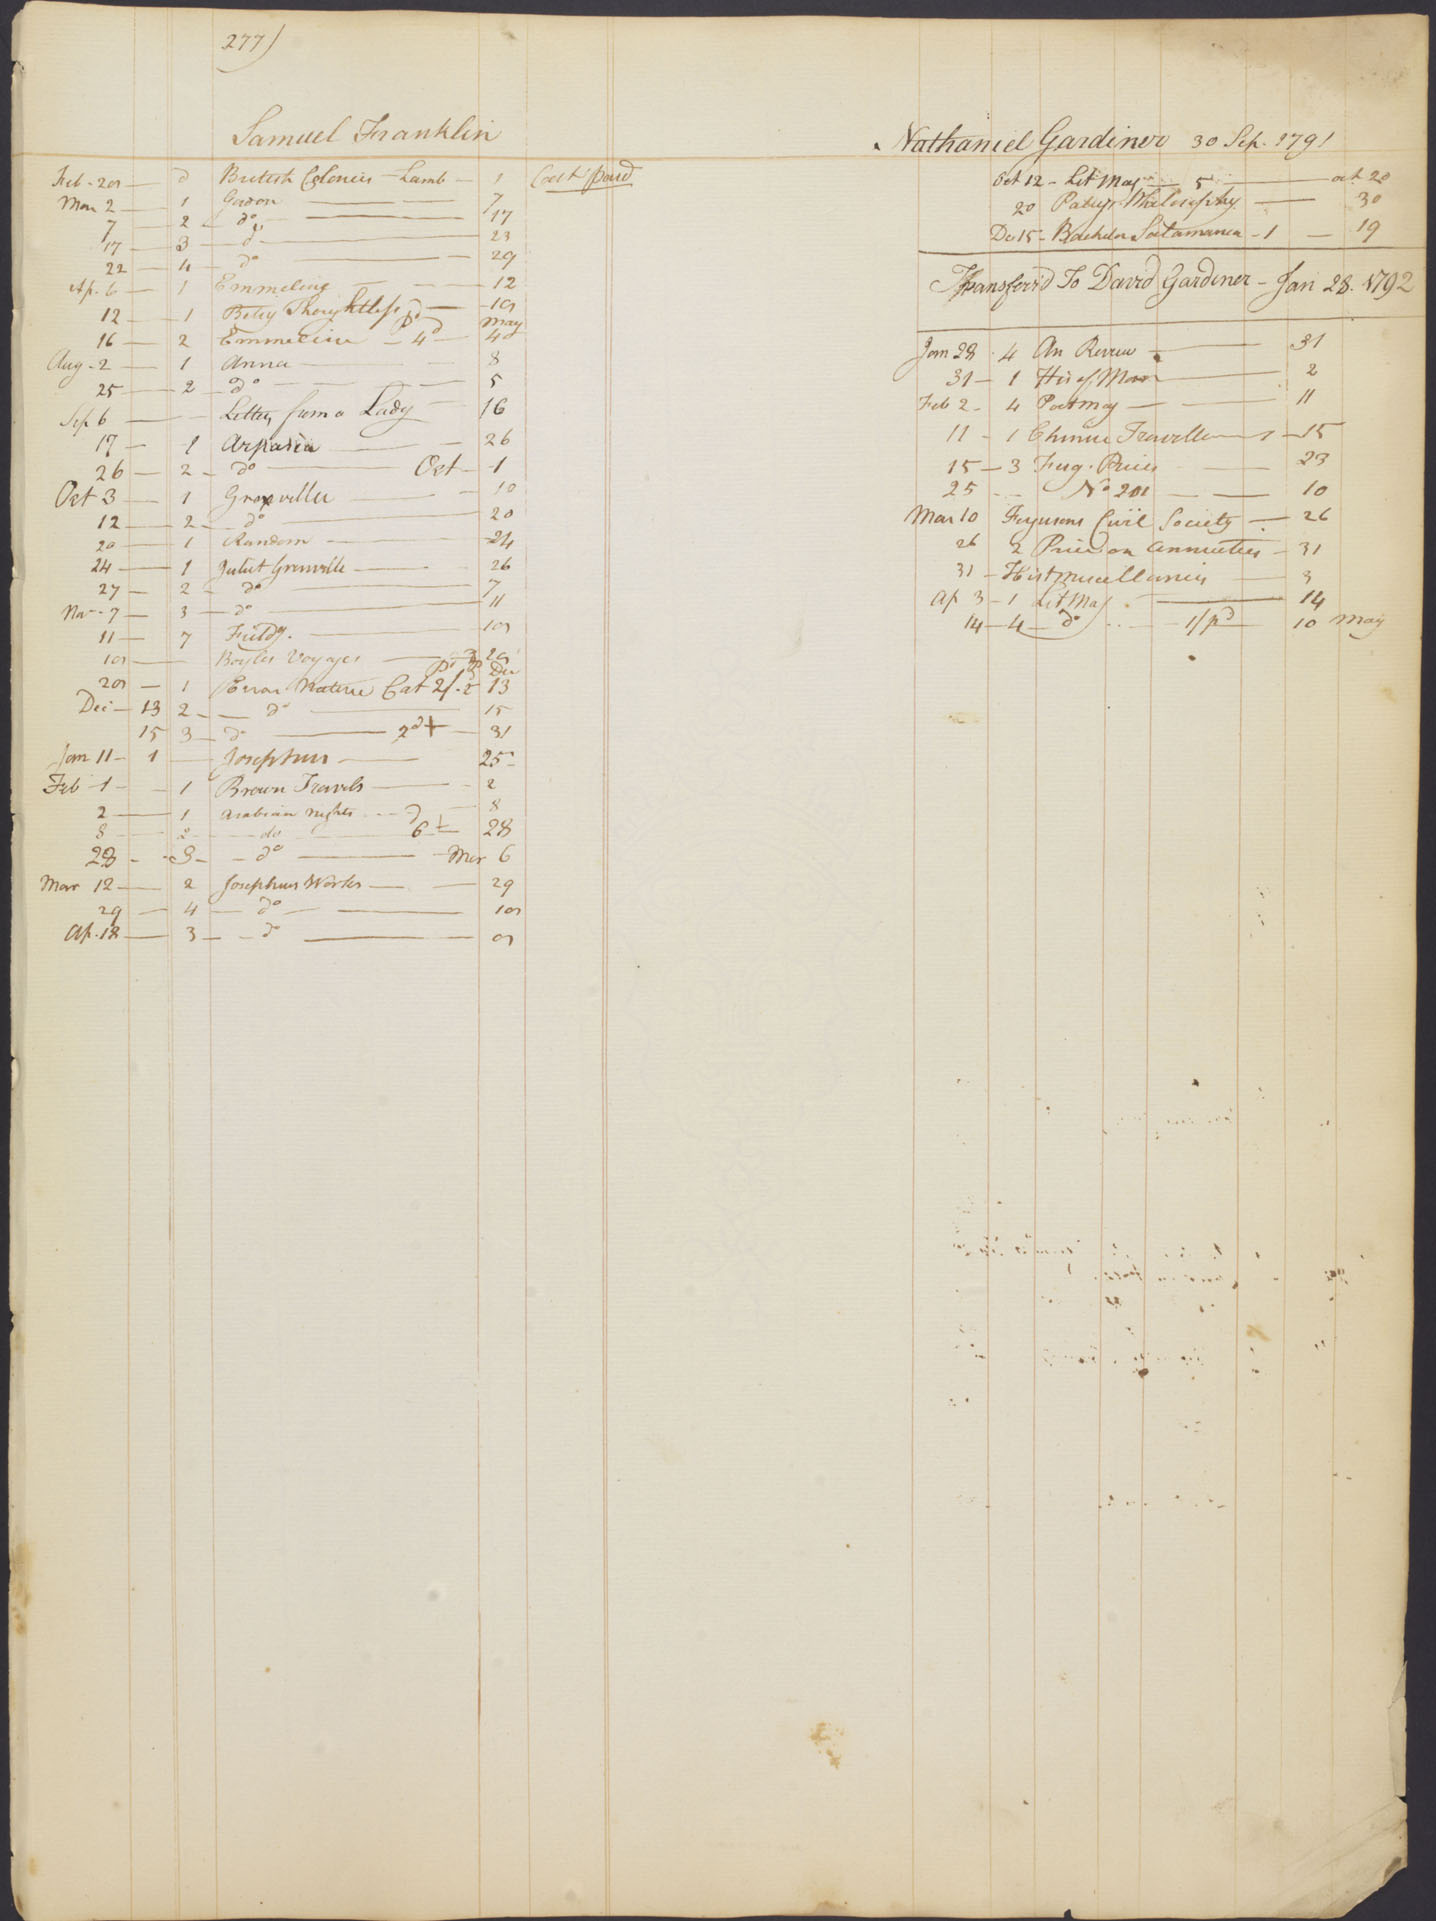 277)
Samuel Franklin
Feb - 20 — d British Colonies - Lamb — 1 Cost paid
Mar 2 — 1 Gordon — 7
7 — 2 — do — 17
17 — 3 — do — 23
22 — 4 — do — 29
Ap. 6 — 1 Emmeline — 12
12 — 1 Betsy Thoughtless pd —
May
16 — 2 Emmeline — 4d — 4
Aug - 2 — 1 Anna — 8
25 — 2 — do — 5
Sep 6 — Letters from a Lady — 16
17 — 1 Arpasia — 26
26 — 2 — do — Oct — 1
Oct 3 — 1 Granville — 10
12 — 2 — do — 20
20 — 1 Random — 24
24 — 1 Juliet Grenville — 26
27 — 2 — do — 7
Nov - 7 — 3 — do — 11
11 — 7 Fieldg. —
Boyles Voyages —
Dec
1 Error Nature Cat 2/. 13
Dec — 13 2 — do — 15
15 3 — do — 31
Jan 11 — 1 — Josephus — 25
Feb - 1 — 1 Brown Travels — 2
2 — 1 Arabian Nights — 8
8 — 2 — do — 28
28 — 3 — do — Mar 6
Mar 12 — 2 Josephus Works — 29
29 — 4 — do —
Ap. 18 — 3 — do —
Nathaniel Gardiner 30 Sep. 1791
Oct 12 - Lit Mag — 5 — oct 20
20 Paleys Philosophy — 30
Dec 15 - Bachelor Salamanca - 1 — 19
Transferr'd To David Gardiner - Jan 28. 1792
Jan 28 . 4 An Review — 31
31 — 1 His of Man — 2
Feb 2 - 4 Poet Mag — 11
11 - 1 Chinese Traveller — 15
15 — 3 Ferg. — 23
25 — No 201 — 10
Mar 10 Fergusons Civil Society — 26
26 2 Price on Annuities — 31
31 — Hist Miscellanies — 3
Ap 3 - 1 Lit Mag — 14
14 — 4 — do — 1/pd — 10 May